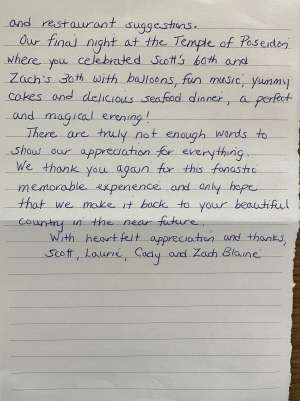 and restaurant suggestions.
Our final night at the Temple of Poseidon
where you celebrated Scott's 60th and
Zach's 30th with balloons, fun music, yummy
cakes and delicious seafood dinner, a perfect
and magical evening!
There are truly not enough words to
show our appreciation for everything.
We thank you again for this fanastic
memorable experience and only hope
that we make it back to your beautiful
country in the near future.
With heartfelt appreciation and thanks,
Scott, Laurie, Cody and Zach Blaine